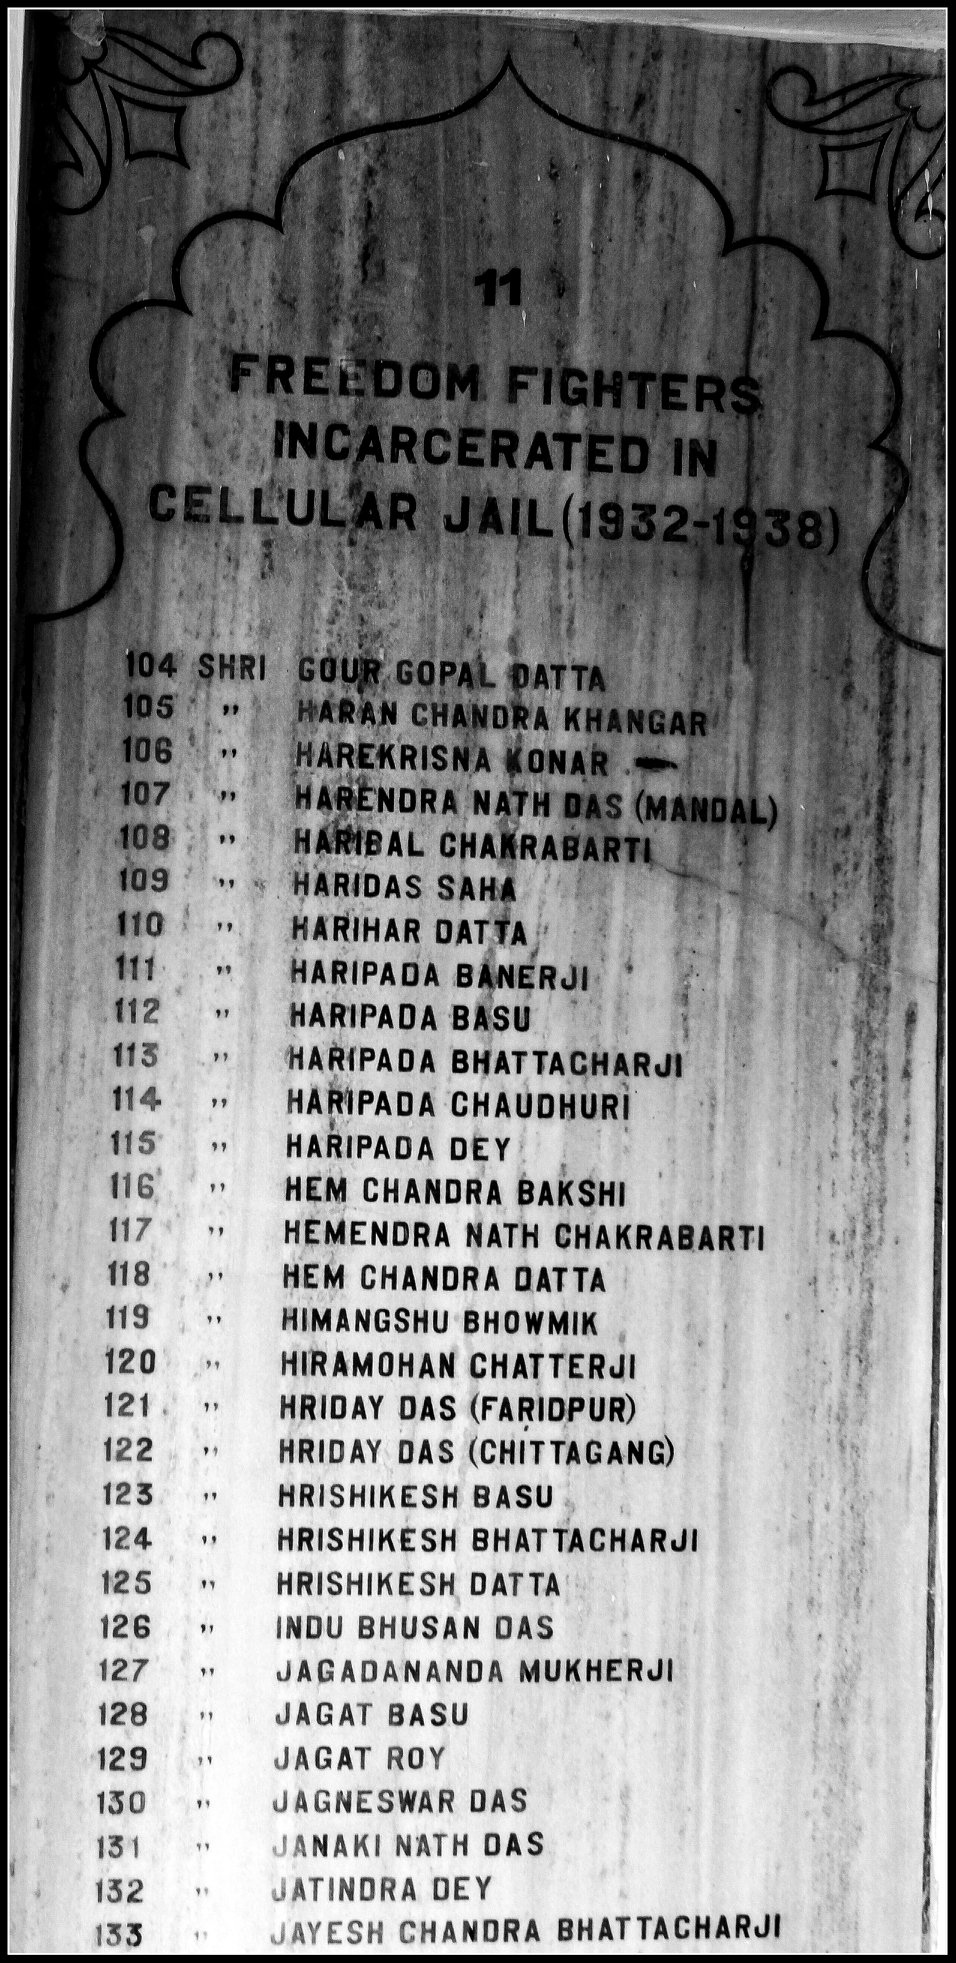 11
FREEDOM FIGHTERS
INCARCERATED IN
CELLULAR JAIL (1932-1938)
104 SHRI GOUR GOPAL DATTA
105 " HARAN CHANDRA KHANGAR
106 " HAREKRISNA KONAR
107 " HARENDRA NATH DAS (MANDAL)
108 " HARIBAL CHAKRABARTI
109 " HARIDAS SAHA
110 " HARIHAR DATTA
111 " HARIPADA BANERJI
112 " HARIPADA BASU
113 " HARIPADA BHATTACHARJI
114 " HARIPADA CHAUDHURI
115 " HARIPADA DEY
116 " HEM CHANDRA BAKSHI
117 " HEMENDRA NATH CHAKRABARTI
118 " HEM CHANDRA DATTA
119 " HIMANGSHU BHOWMIK
120 " HIRAMOHAN CHATTERJI
121 " HRIDAY DAS (FARIDPUR)
122 " HRIDAY DAS (CHITTAGANG)
123 " HRISHIKESH BASU
124 " HRISHIKESH BHATTACHARJI
125 " HRISHIKESH DATTA
126 " INDU BHUSAN DAS
127 " JAGADANANDA MUKHERJI
128 " JAGAT BASU
129 " JAGAT ROY
130 " JAGNESWAR DAS
131 " JANAKI NATH DAS
132 " JATINDRA DEY
133 " JAYESH CHANDRA BHATTACHARJI